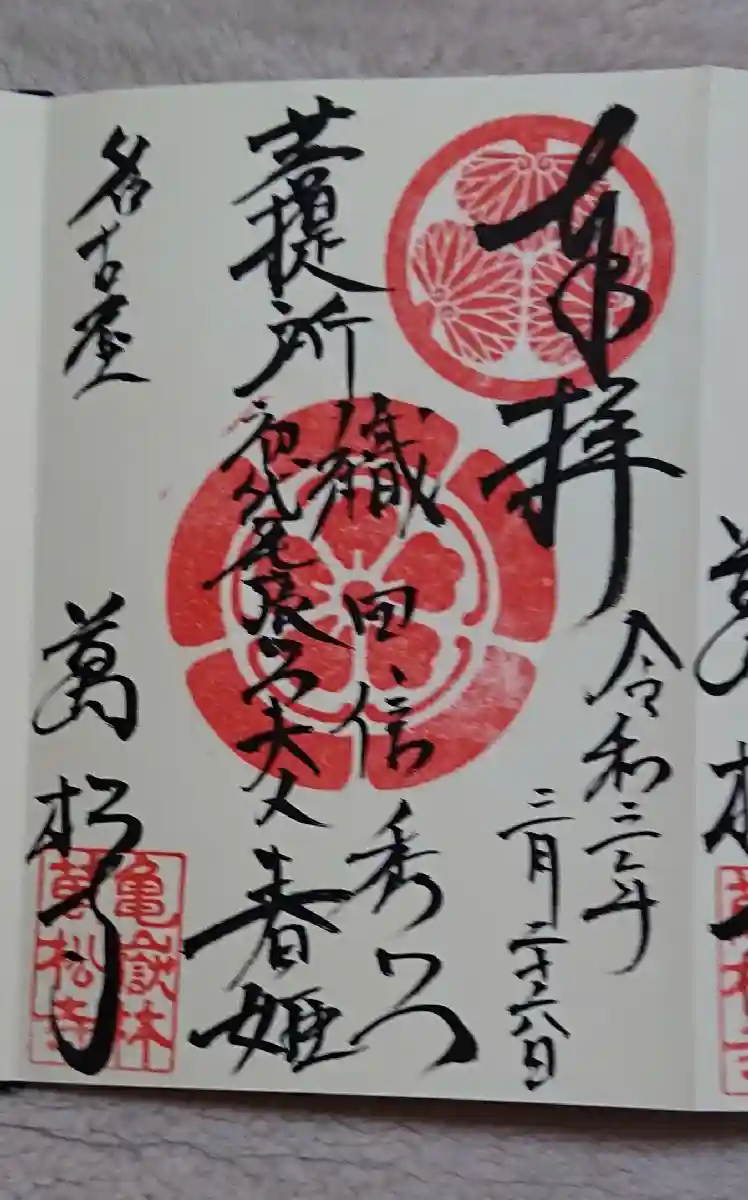 奉拝
令和三年
三月二十六日
菩提所
織田信秀公
初代尾張公夫人春姫
名古屋
萬松寺
亀嶽林
萬松寺